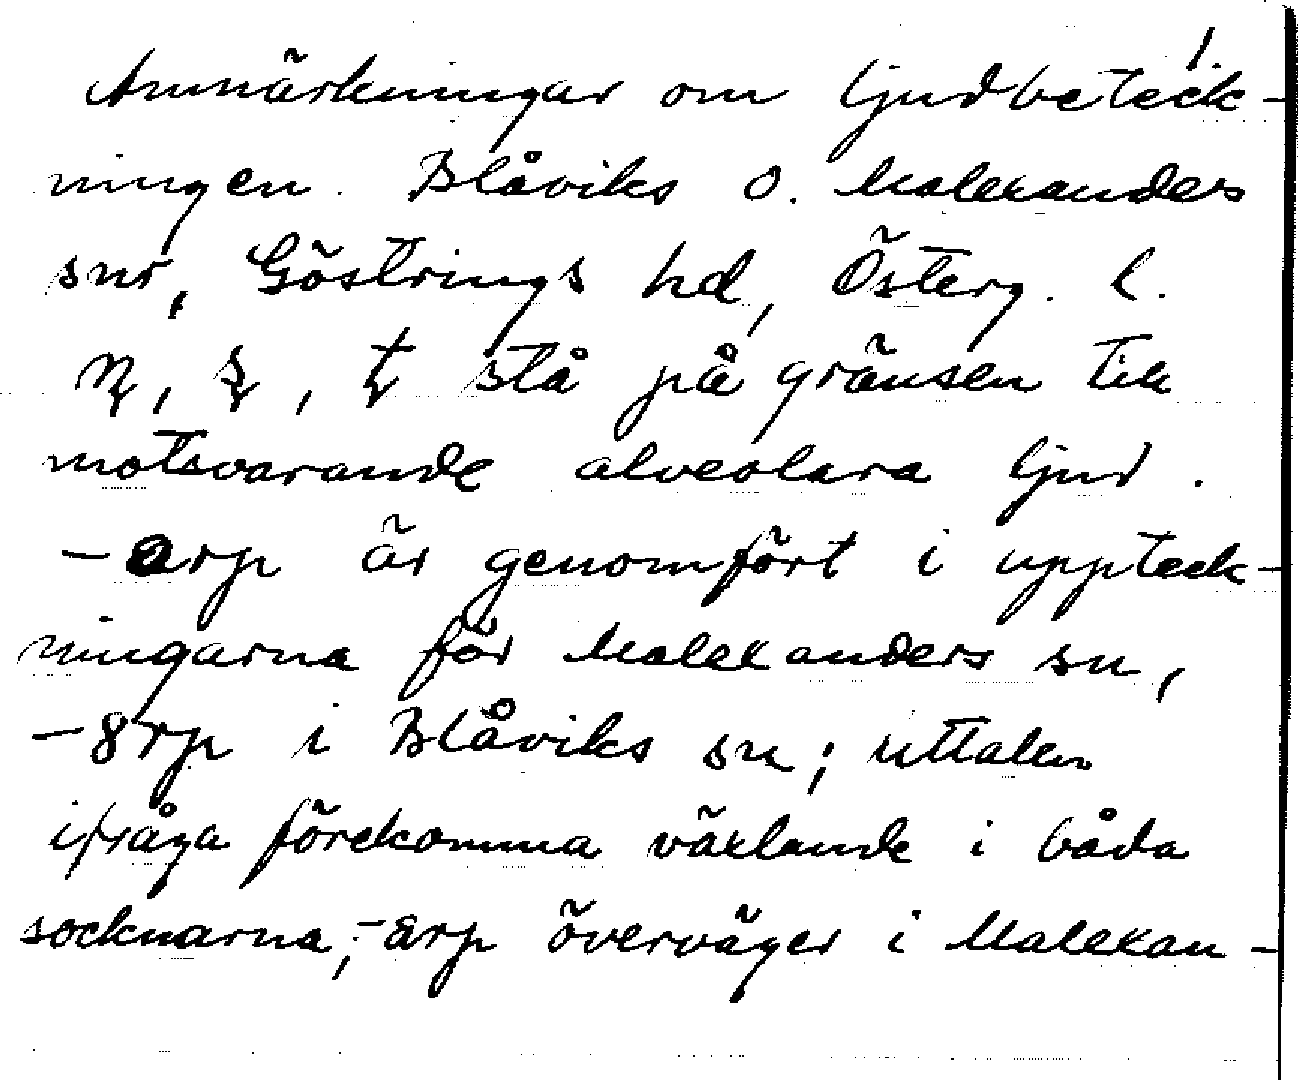 1.
Anmärkningar om ljudbeteck-
ningen. Blåviks o. Malexanders
snr, Göstrings hd, Österg. l.
ɳ, ʂ, ʈ stå på gränsen till
motsvarande alveolara ljud.
-arp är genomfört i uppteck-
ningarna för Malexanders sn,
-8rp i Blåviks sn; uttalen
ifråga förekomma växlande i båda
socknarna, -arp överväger i Malexan-